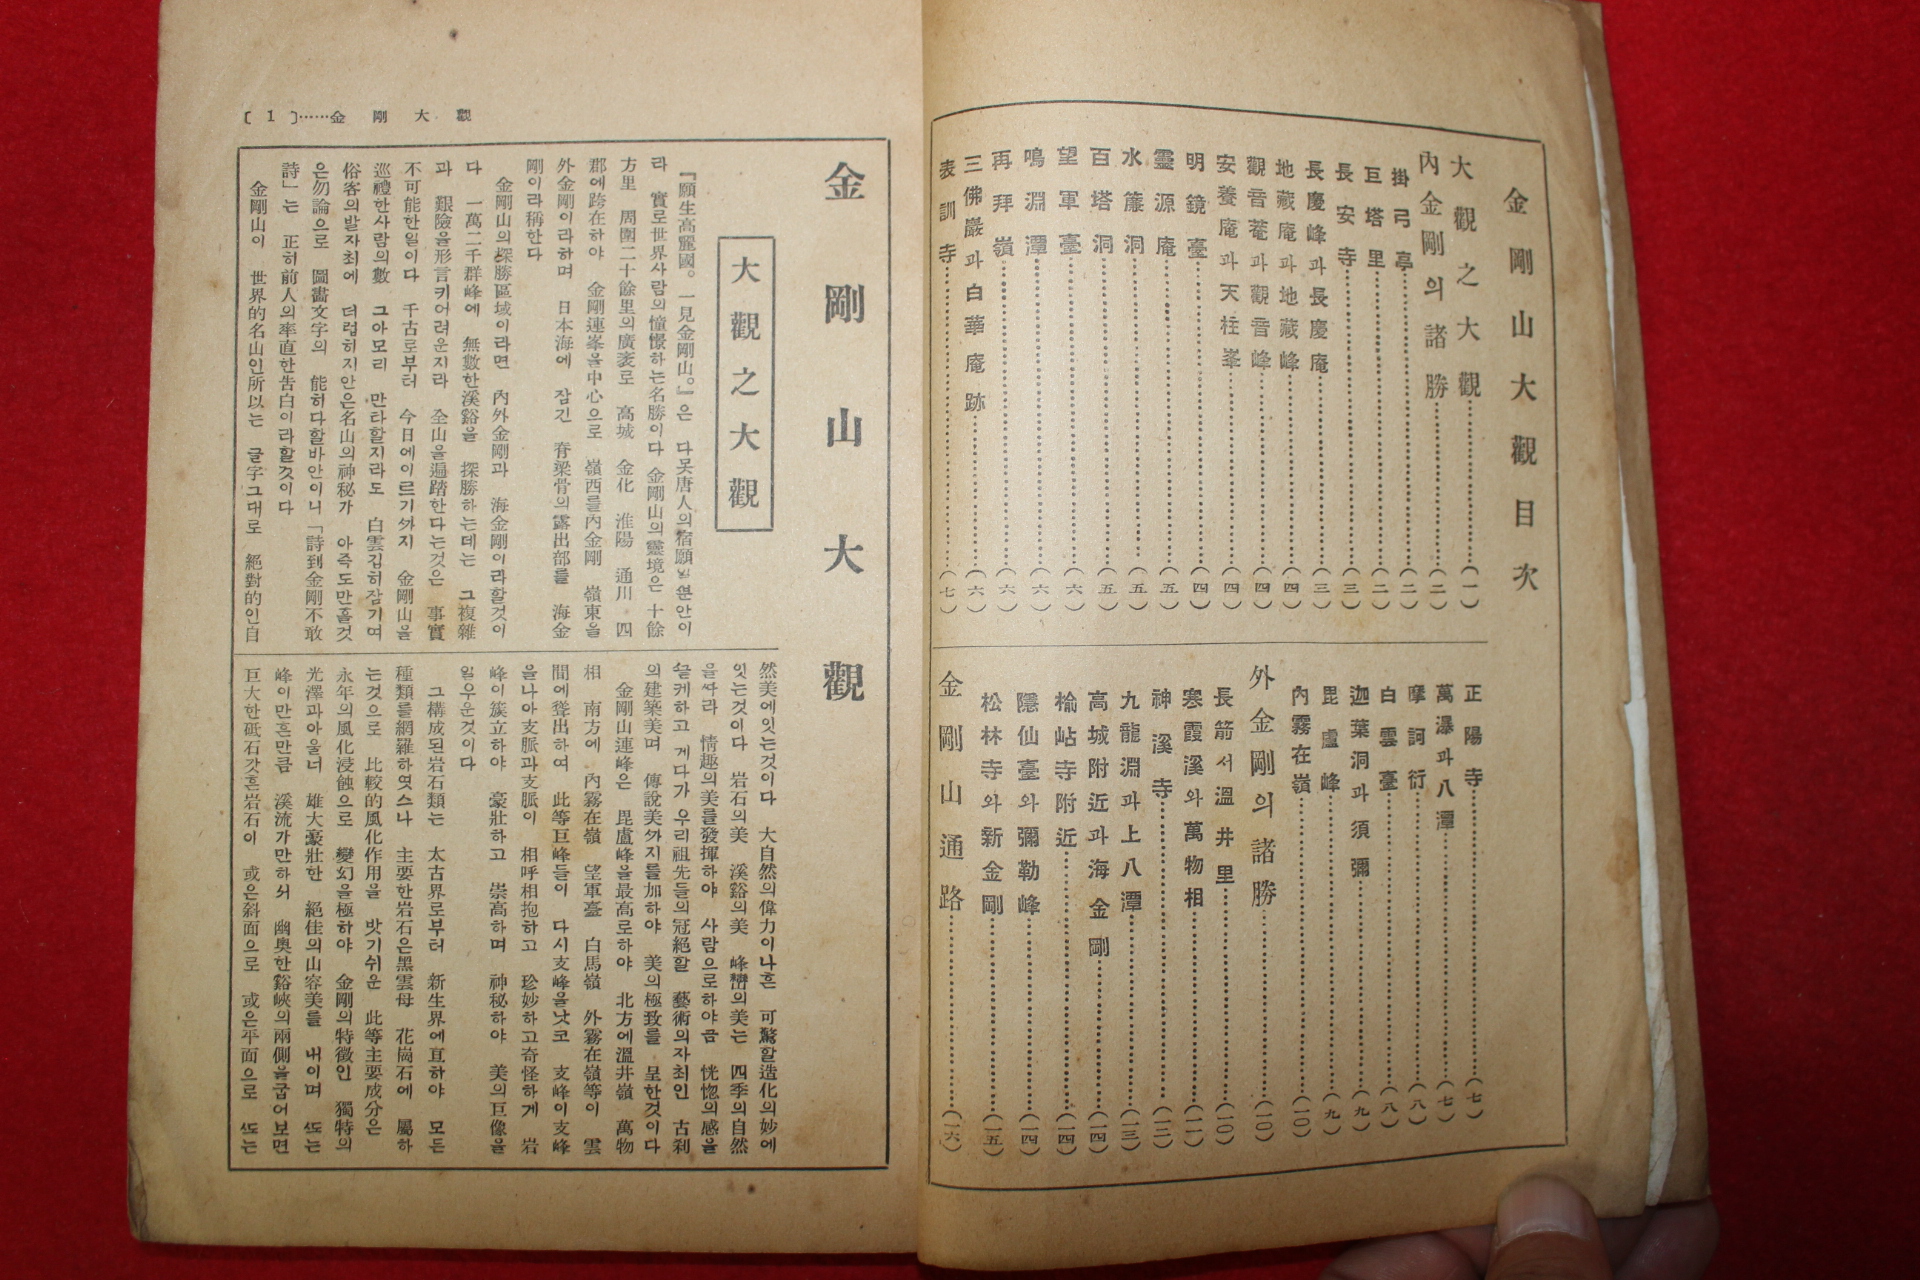 金剛山大觀目次
大觀之大觀 (一)
內金剛의諸勝 (二)
掛弓亭 (二)
巨塔里 (二)
長安寺 (三)
長慶峰과長慶庵 (三)
地藏庵과地藏峰 (四)
觀音菴과觀音峰 (四)
安養庵과天柱峯 (四)
明鏡臺 (四)
靈源庵 (五)
水簾洞 (五)
百塔洞 (五)
望軍臺 (六)
鳴淵潭 (六)
再拜嶺 (六)
三佛巖과白華庵跡 (六)
表訓寺 (七)
正陽寺 (七)
萬瀑과八潭 (七)
摩訶衍 (八)
白雲臺 (八)
迦葉洞과須彌 (九)
毘盧峰 (九)
內霧在嶺 (一〇)
外金剛의諸勝 (一〇)
長箭서溫井里 (一〇)
寒霞溪와萬物相 (一一)
神溪寺 (一二)
九龍淵과上八潭 (一三)
高城附近과海金剛 (一四)
楡岾寺附近 (一四)
隱仙臺와彌勒峰 (一四)
松林寺와新金剛 (一五)
金剛山通路 (一六)
〔1〕……金剛大觀
金剛山大觀
大觀之大觀
『願生高麗國。一見金剛山。』은 다못唐人의宿願일뿐안이
라 實로世界사람의憧憬하는名勝이다 金剛山의靈境은 十餘
方里 周圍二十餘里의廣袤로 高城 金化 淮陽 通川 四
郡에跨在하야 金剛連峯을中心으로 嶺西를內金剛 嶺東을
外金剛이라하며 日本海에 잠긴 脊梁骨의露出部를 海金
剛이라稱한다
金剛山의探勝區域이라면 內外金剛과 海金剛이라할것이
다 一萬二千群峰에 無數한溪谿을 探勝하는데는 그複雜
과 艱險을形言키어려운지라 全山을遍踏한다는것은 事實
不可能한일이다 千古로부터 今日에이르기ᄭᅡ지 金剛山을
巡禮한사람의數 그아모리 만타할지라도 白雲깁히잠기여
俗客의발자최에 더럽히지안은名山의神秘가 아즉도만흘것
은勿論으로 圖畵文字의 能히다할바안이니 「詩到金剛不敢
詩」는 正히前人의率直한告白이라할것이다
金剛山이 世界的名山인所以는 글字그대로 絕對的인自
然美에잇는것이다 大自然의偉力이나흔 可驚할造化의妙에
잇는것이다 岩石의美 溪谿의美 峰巒의美는 四季의自然
을ᄯᅡ라 情趣의美를發揮하야 사람으로하야금 恍惚의感을
늣기게하고 게다가 우리祖先들의冠絕할 藝術의자최인 古刹
의建築美며 傳說美ᄭᅡ지를加하야 美의極致를 呈한것이다
金剛山連峰은 毘盧峰을最高로하야 北方에溫井嶺 萬物
相 南方에 內霧在嶺 望軍臺 白馬嶺 外霧在嶺等이 雲
間에聳出하여 此等巨峰들이 다시支峰을낫코 支峰이支峰
을나아支脈과支脈이 相呼相抱하고 珍妙하고奇怪하게 岩
峰이簇立하야 豪壯하고 崇高하며 神秘하야 美의巨像을
일우운것이다
그構成된岩石類는 太古界로부터 新生界에亘하야 모든
種類를網羅하엿스나 主要한岩石은黑雲母 花崗石에 屬하
는것으로 比較的風化作用을 밧기쉬운 此等主要成分은
永年의風化浸蝕으로 變幻을極하야 金剛의特徵인 獨特의
光澤과아울너 雄大豪壯한 絕佳의山容美를 내이며 ᄯᅩ는
峰이만흔만큼 溪流가만하서 幽奧한谿峽의兩側을굽어보면
巨大한砥石갓흔岩石이 或은斜面으로 或은平面으로 ᄯᅩ는